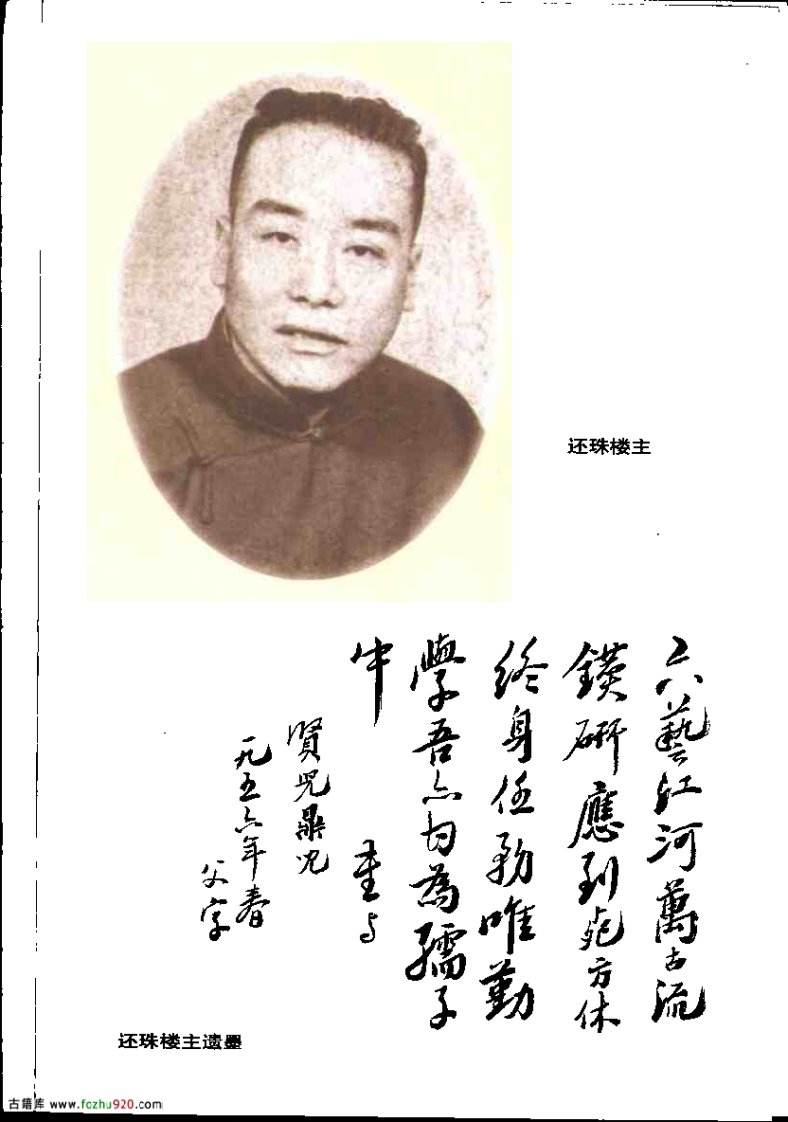 还珠楼主
六藝江河萬古流
鑽研應到死方休
终身任務唯勤
學吾亦甘為孺子
牛 書与
賢兒鼎
一九五六年春
父字
还珠楼主遗墨
古籍库 www.fczhu920.com